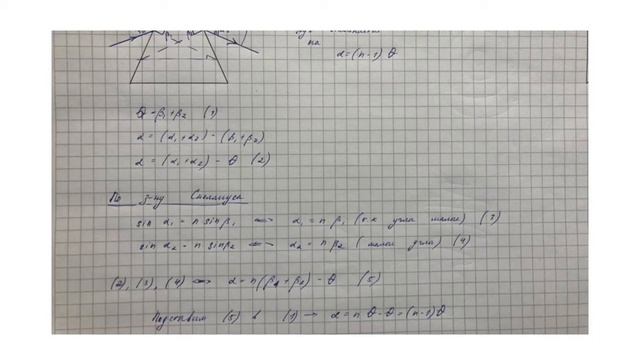 на
α = (n-1) θ
θ = β₁ + β₂ (1)
α = (α₁ + α₂) - (β₁ + β₂)
α = (α₁ + α₂) - θ (2)
По з-ну Снеллиуса
sin α₁ = n sin β₁ ⟺ α₁ = n β₁ (т.к углы малые) (3)
sin α₂ = n sin β₂ ⟺ α₂ = n β₂ (малые углы) (4)
(2), (3), (4) ⟺ α = n(β₁ + β₂) - θ (5)
Подставим (5) в (1) → α = n θ - θ = (n-1) θ